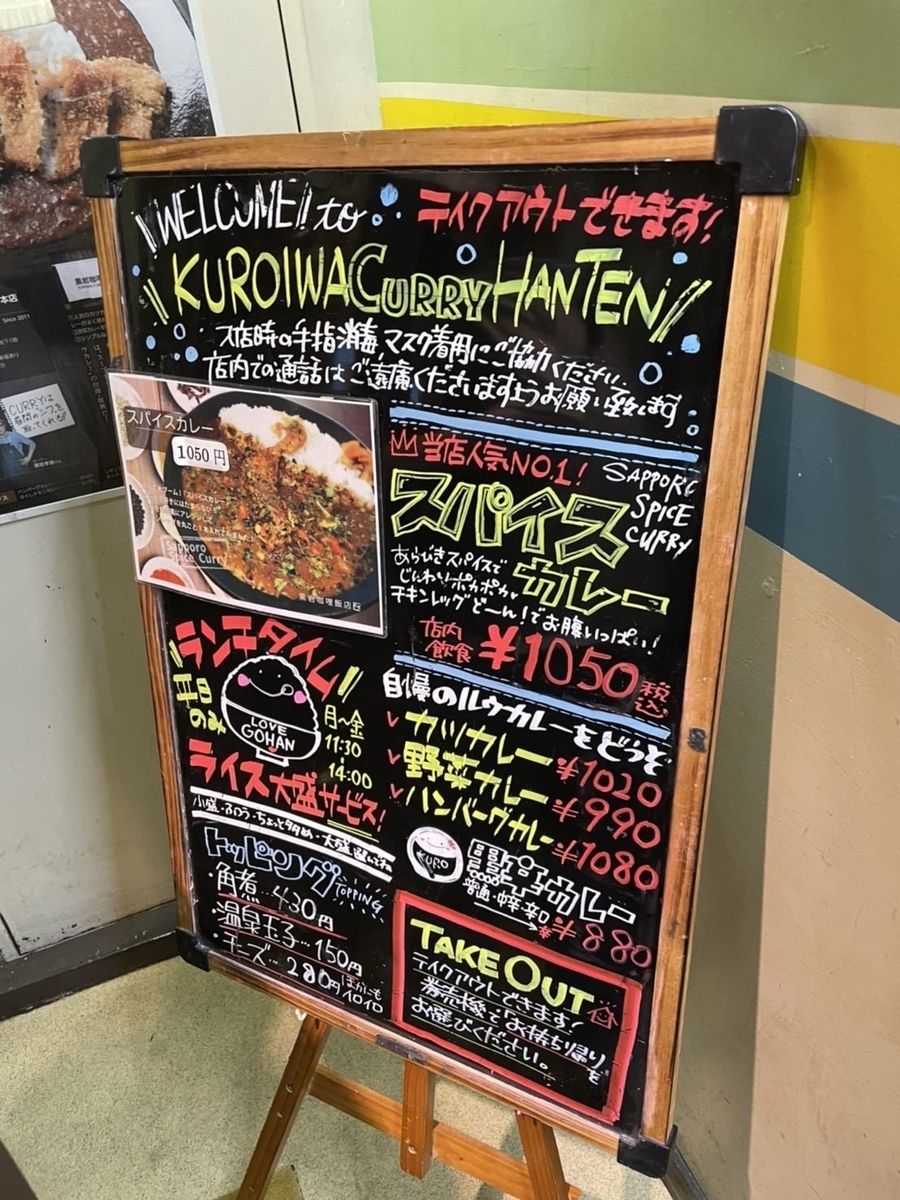 WELCOME!! to
テイクアウトできます!
KUROIWA CURRY HANTEN
入店時の手指消毒、マスク着用にご協力ください。
店内での通話はご遠慮くださいますようお願い致します
スパイスカレー
1050円
Sapporo
Spice Curry
黒岩咖喱飯店
当店人気NO1!
SAPPORO
SPICE
CURRY
スパイス
カレー
あらびきスパイスで
じんわりポカポカ
チキンレッグどーん!でお腹いっぱい!
店内
飲食
¥1050
税込
ランチタイム
平日
のみ
LOVE
GOHAN
月〜金
11:30
14:00
ライス大盛サービス!
小盛・ふつう・ちょっと多め・大盛
トッピング
TOPPING
・角煮…430円
・温泉玉子…150円
・チーズ…280円
ほかにも
イロイロ
自慢のルウカレーをどうぞ
カツカレー ¥1020
野菜カレー ¥990
ハンバーグカレー ¥1080
KURO
カレー
普通・中辛・辛口
¥880
TAKE OUT
テイクアウトできます!
券売機でお持ち帰りを
お選びください。
本店
Since 2011
CURRYは